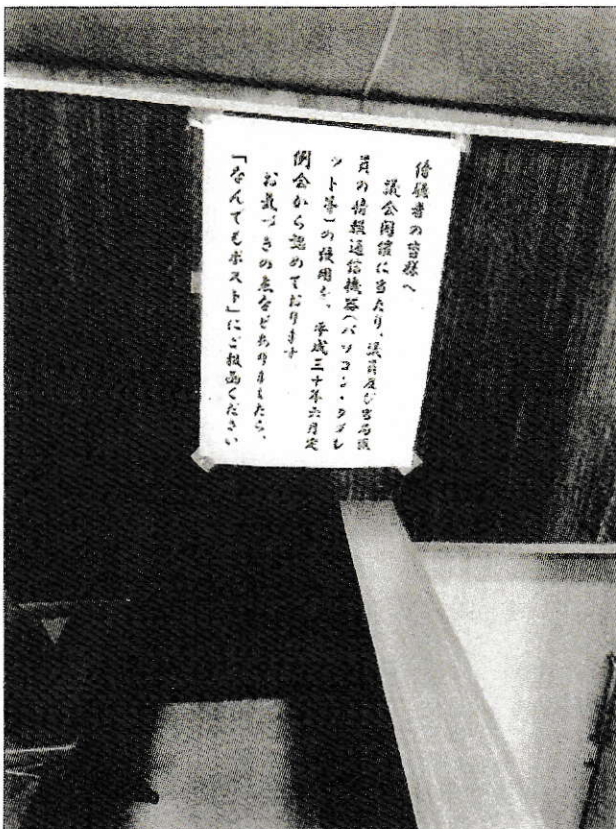 傍聴者の皆様へ
議会開催に当たり、議員及び当局職
員の情報通信機器(パソコン・タブレ
ット等)の使用を、平成三十年六月定
例会から認めております
お気づきの点などありましたら、
「なんでもポスト」にご投函ください